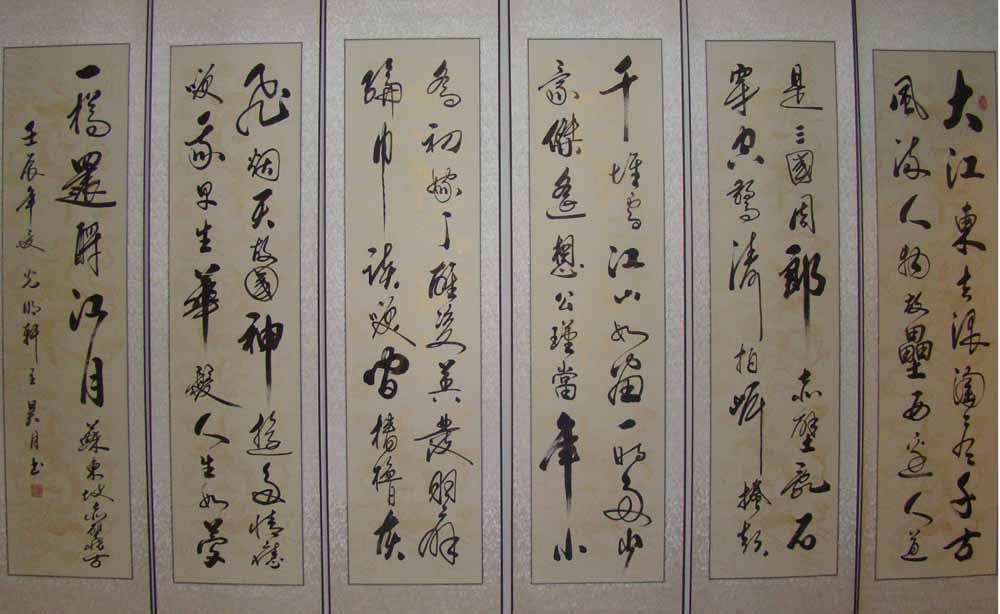 大江東去浪淘盡千古
風流人物故壘西邊人道
是三國周郎赤壁亂石
穿空驚濤拍岸捲起
千堆雪江山如畫一時多少
豪傑遙想公瑾當年小
喬初嫁了雄姿英發羽扇
綸巾談笑間檣櫓灰
飛烟灭故國神遊多情應
笑我早生華髮人生如夢
一樽還酹江月 蘇東坡赤壁懷古
壬辰年夏光明軒主昊月书